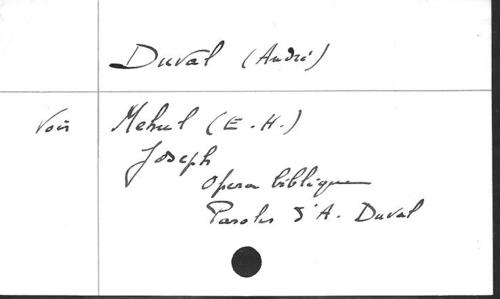 Duval (André)
Voir Mehul (E. H.)
Joseph
Opera biblique
Paroles d'A. Duval